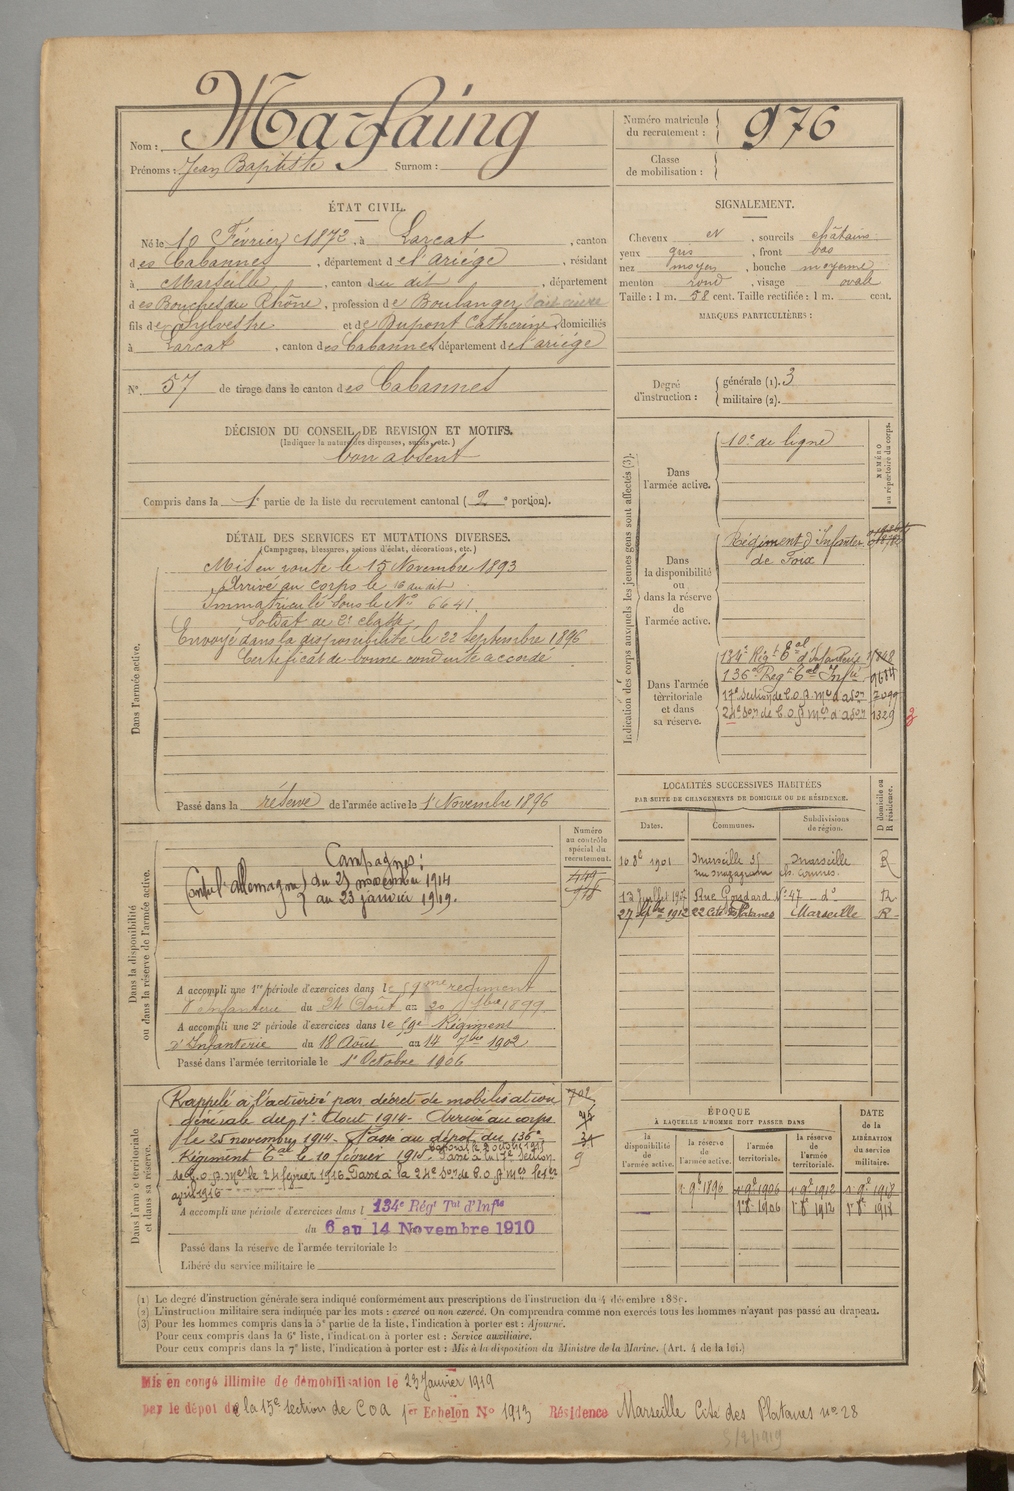 Nom : Marfaing
Prénoms : Jean Baptiste Surnom :
Numéro matricule du recrutement : 976
Classe de mobilisation :
ÉTAT CIVIL.
Né le 10 Février 1872, à Larcat, canton
des Cabannes, département de l'ariège, résidant
à Marseille, canton du dit, département
des Bouches du Rhône, profession de Boulanger
fils de Sylvestre et de Dupont Catherine, domiciliés
à Larcat, canton des Cabannes, département de l'ariège
N° 57 de tirage dans le canton des Cabannes
SIGNALEMENT.
Cheveux N, sourcils châtains
yeux gris, front bas
nez moyen, bouche moyenne
menton rond, visage ovale
Taille : 1 m. 58 cent. Taille rectifiée : 1 m. cent.
MARQUES PARTICULIÈRES :
Degré d'instruction : générale (1). 3
militaire (2).
DÉCISION DU CONSEIL DE REVISION ET MOTIFS.
(Indiquer la nature des dispenses, sursis, etc.)
bon absent
Compris dans la 1e partie de la liste du recrutement cantonal (2e portion).
DÉTAIL DES SERVICES ET MUTATIONS DIVERSES.
(Campagnes, blessures, actions d'éclat, décorations, etc.)
Dans l'armée active.
Mis en route le 15 Novembre 1893
Arrivé au corps le 16 au dit
Immatriculé sous le N° 6641.
Soldat de 2e classe
Envoyé dans la disponibilité le 22 Septembre 1896
Certificat de bonne conduite accordé
Passé dans la réserve de l'armée active le 1r Novembre 1896
Indication des corps auxquels les jeunes gens sont affectés (3).
NUMÉRO au répertoire du corps.
Dans l'armée active.
10e de ligne
Dans la disponibilité ou dans la réserve de l'armée active.
Régiment d'Infanterie
de Foix
Dans l'armée territoriale et dans sa réserve.
134e Régt Eal d'Infanterie
136e Regt Eal Infie 9614
17e Section de C.O.A. Mre d'adon 7099
24e Son de C.O.A. Mres d'adon 1329
Dans la disponibilité ou dans la réserve de l'armée active.
Numéro au contrôle spécial du recrutement.
Campagnes :
Contre l'allemagne) du 25 novembre 1914
au 23 janvier 1919.
A accompli une 1re période d'exercices dans le 59eme regiment
d'infanterie du 24 Août au 20 7bre 1899.
A accompli une 2e période d'exercices dans le 59e Régiment
d'Infanterie du 18 Août au 14 7bre 1902
Passé dans l'armée territoriale le 1r Octobre 1906
LOCALITÉS SUCCESSIVES HABITÉES
PAR SUITE DE CHANGEMENTS DE DOMICILE OU DE RÉSIDENCE.
Dates. Communes. Subdivisions de région. D domicile ou R résidence.
10 8e 1901 Marseille Marseille R
17 Juillet 1902 Rue N° 47 do R
27 1912 22 Cité Platanes Marseille R
Dans l'armée territoriale et dans sa réserve.
Rappelé à l'activité par décret de mobilisation
générale du 1r Aout 1914 - Arrivé au corps
le 25 novembre 1914. Passé au dépot du 136e
Régiment Eal le 10 février 1915. Passé à la 17e Section
de C.O.A. Mres le 24 février 1916. Passé à la 24e Son de C.O.A. Mres le 1er
avril 1916
A accompli une période d'exercices dans l 134e Régt Tal d'Infie
du 6 au 14 Novembre 1910
Passé dans la réserve de l'armée territoriale le
Libéré du service militaire le
702
9
ÉPOQUE
A LAQUELLE L'HOMME DOIT PASSER DANS
la disponibilité de l'armée active. la réserve de l'armée active. l'armée territoriale. la réserve de l'armée territoriale.
DATE de la LIBÉRATION du service militaire.
1r 9e 1896 1r 9e 1906 1r 9e 1912 1r 9e 1918
1r 8e 1906 1r 8e 1912 1r 8e 1918
(1) Le degré d'instruction générale sera indiqué conformément aux prescriptions de l'instruction du 4 décembre 1889.
(2) L'instruction militaire sera indiquée par les mots : exercé ou non exercé. On comprendra comme non exercés tous les hommes n'ayant pas passé au drapeau.
(3) Pour les hommes compris dans la 5e partie de la liste, l'indication à porter est : Ajourné.
Pour ceux compris dans la 6e liste, l'indication à porter est : Service auxiliaire.
Pour ceux compris dans la 7e liste, l'indication à porter est : Mis à la disposition du Ministre de la Marine. (Art. 4 de la loi.)
Mis en congé illimité de démobilisation le 23 Janvier 1919
par le dépot de la 15e section de COA 1er Echelon N° 1913 Résidence Marseille Cité des Platanes n° 28
5/2/1919